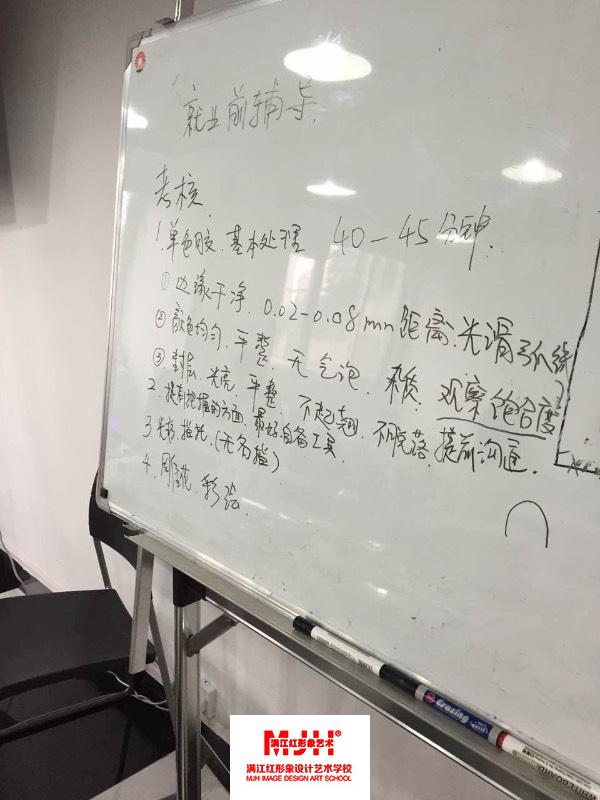 就业前辅导.
考核.
1.单色胶.基本处理 40-45分钟.
①边缘干净.0.02-0.08mm距离.光滑弧线
②颜色均匀.平整.无气泡.杂质.观察饱合度
③封层.光亮.平整.不起翘.不脱落.提前沟通.
2.提有把握的方面.最好自备工具.
3.光疗.指托.(无名指)
4.雕花.彩绘.
Erasing
WHITEBOARD
MJH®
满江红形象艺术
满江红形象设计艺术学校
MJH IMAGE DESIGN ART SCHOOL